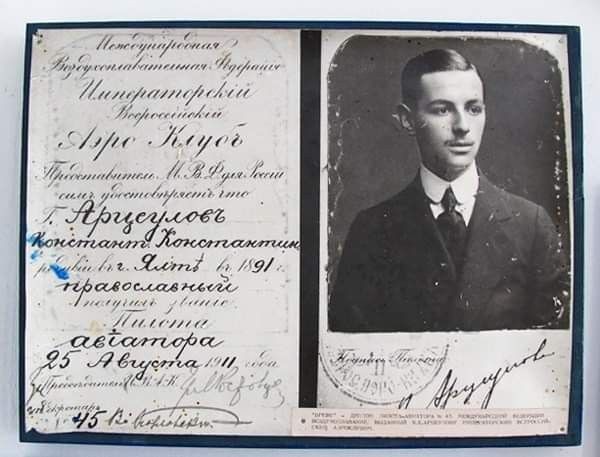 Международная
Воздухоплавательная Федерація
Императорскій
Всероссійскій
Аэро Клубъ
Представитель М.В.Ф. для Россіи
симъ удостовѣряетъ что
Г. Арцеуловъ
Констант. Константин.
родивш въ г. Ялтѣ въ 1891 г.
православный
получилъ званіе
Пилота
авіатора
25 Августа 1911 года
Предсѣдатель
Секретарь
45
Подпись Пилота
Арцеуловъ
"БРЕВЕ" - ДИПЛОМ ПИЛОТА-АВИАТОРА № 45 МЕЖДУНАРОДНОЙ ФЕДЕРАЦИИ
ВОЗДУХОПЛАВАНИЯ, ВЫДАННЫЙ К.К.АРЦЕУЛОВУ ИМПЕРАТОРСКИМ ВСЕРОССИЙ-
СКИМ АЭРОКЛУБОМ.